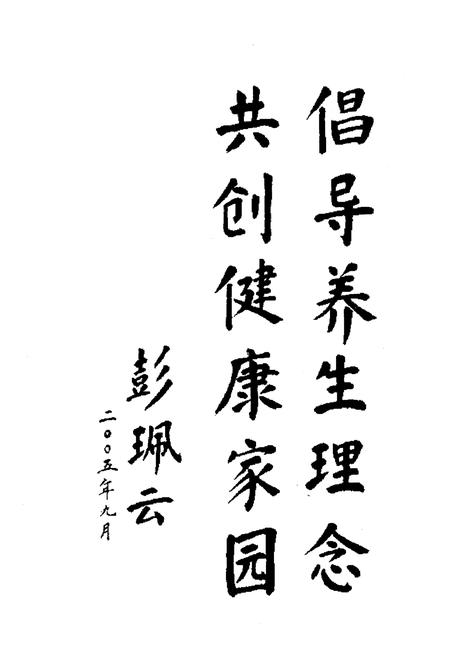 倡导养生理念
共创健康家园
彭珮云
二〇〇五年九月